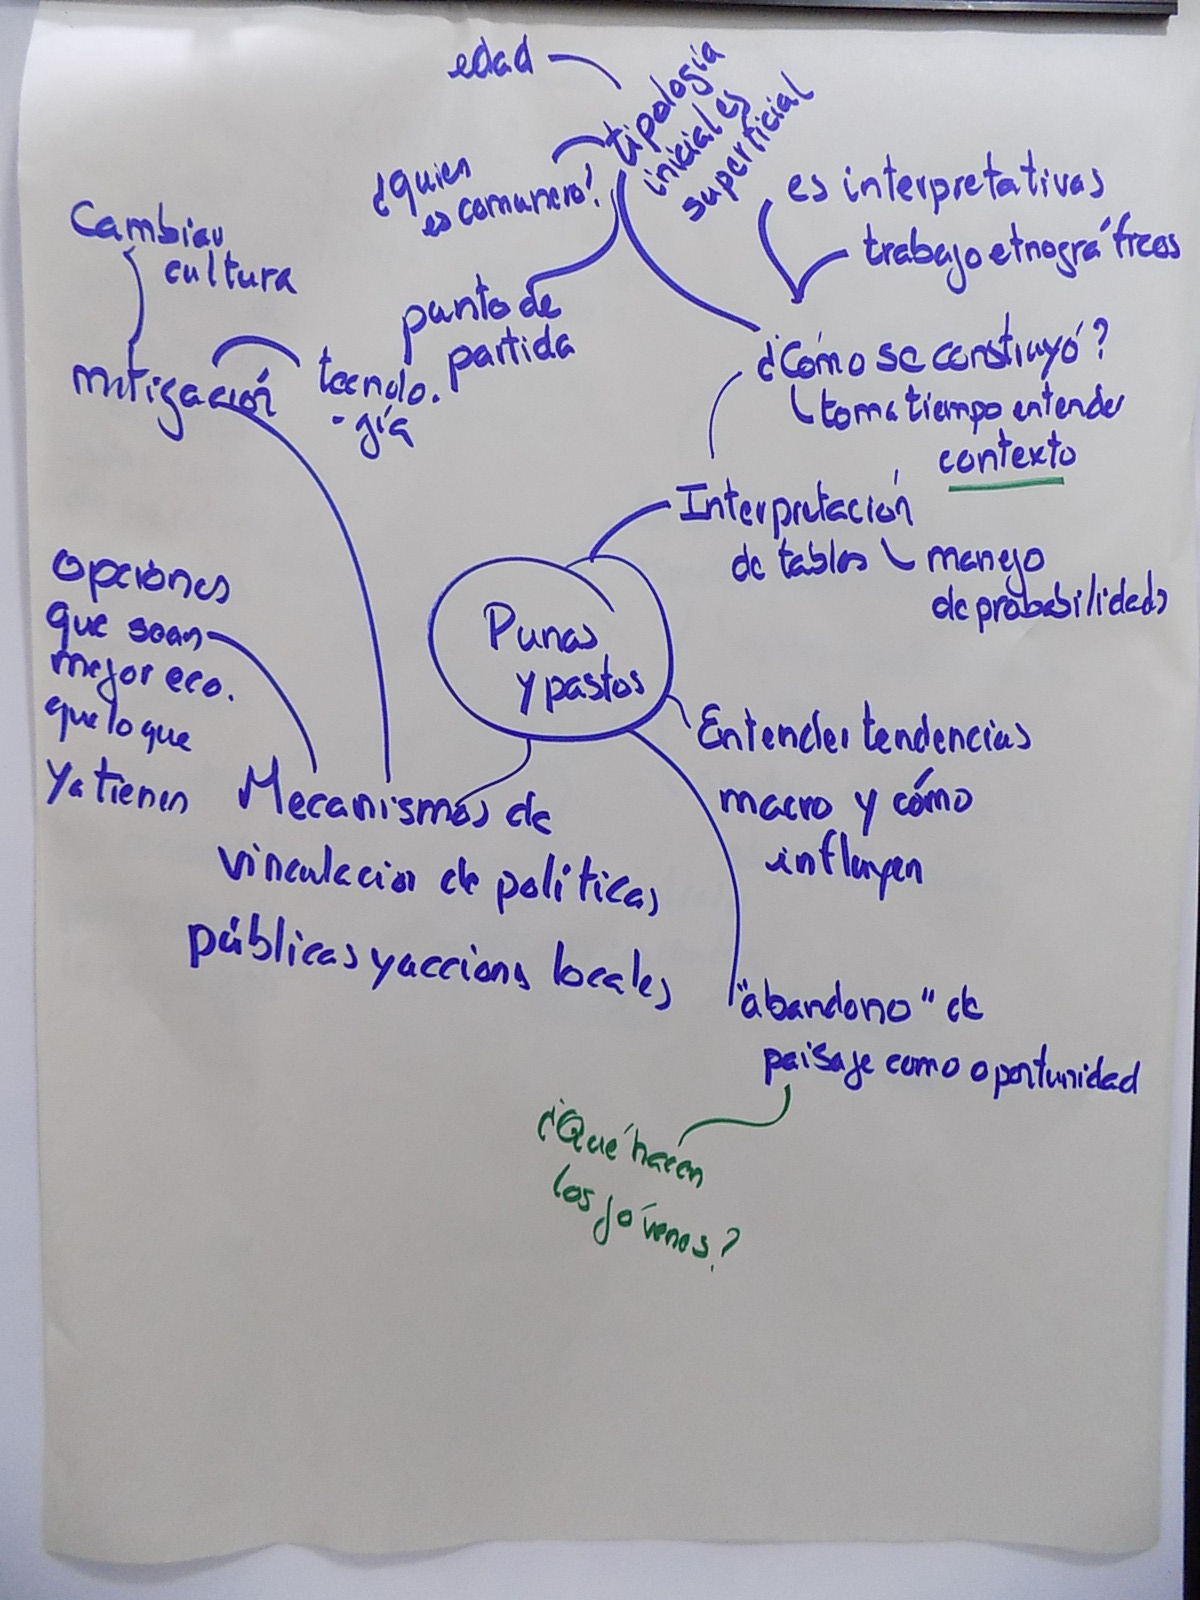 edad
tipología
inicial es
superficial
¿quien
es comunero?
es interpretativas
trabajo etnográficos
Cambiar
cultura
punto de
partida
mitigación
tecnolo.
-gía
¿Cómo se construyó?
toma tiempo entender
contexto
Interpretación
de tablas
manejo
de probabilidads
Punas
y pastos
Opciones
que sean
mejor eco.
que lo que
ya tienen
Entender tendencias
macro y cómo
influyen
Mecanismos de
vinculacion de políticas
públicas y accions locales
"abandono" de
paisaje como oportunidad
¿Qué hacen
los jóvenes?